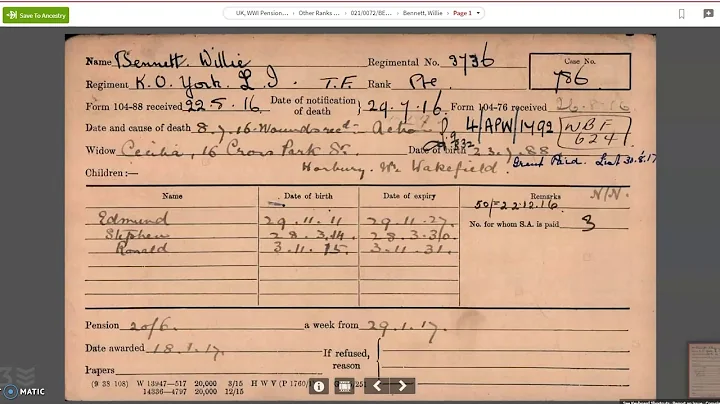 Save To Ancestry
UK, WWI Pension... > Other Ranks ... > 021/0072/BE... > Bennett, Willie > Page 1
Name Bennett. Willie Regimental No. 3736 Case No.
786
Regiment K.O. York. L.I. T.F. Rank Pte
Form 104-88 received 22.5.16 Date of notification of death } 29.7.16. Form 104-76 received
Date and cause of death 8.7.16. Wounds recd - Action 4/APW/1492 WBF
624
Widow Cecilia, 16 Cross Park St. Date of birth 23.7.88
Horbury. Nr Wakefield. Grant Paid. List 30.8.17
Children:—
Name Date of birth Date of expiry Remarks N/N.
50/= 22.12.16.
Edmund 29.11.11 29.11.27. No. for whom S.A. is paid 3
Stephen 28.3.14. 28.3.30.
Ronald 3.11.15. 3.11.31.
Pension 20/6. a week from 29.1.17.
Date awarded 18.1.17. If refused, reason {
Papers
(9 38 108) W 13947—517 20,000 3/15 H W V (P 1760/
14336—4797 20,000 12/15
MATIC